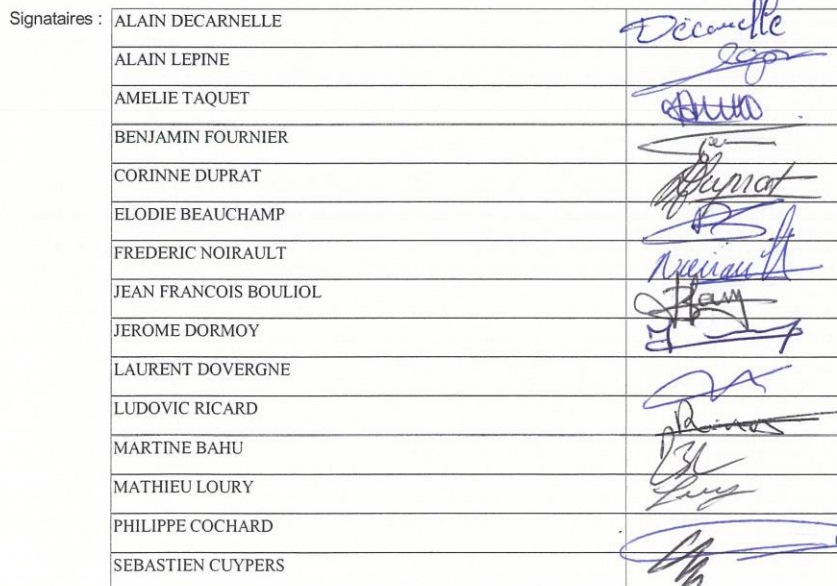 Signataires :
ALAIN DECARNELLE Décarnelle
ALAIN LEPINE
AMELIE TAQUET
BENJAMIN FOURNIER
CORINNE DUPRAT Duprat
ELODIE BEAUCHAMP
FREDERIC NOIRAULT Noirault
JEAN FRANCOIS BOULIOL
JEROME DORMOY
LAURENT DOVERGNE
LUDOVIC RICARD
MARTINE BAHU
MATHIEU LOURY
PHILIPPE COCHARD
SEBASTIEN CUYPERS